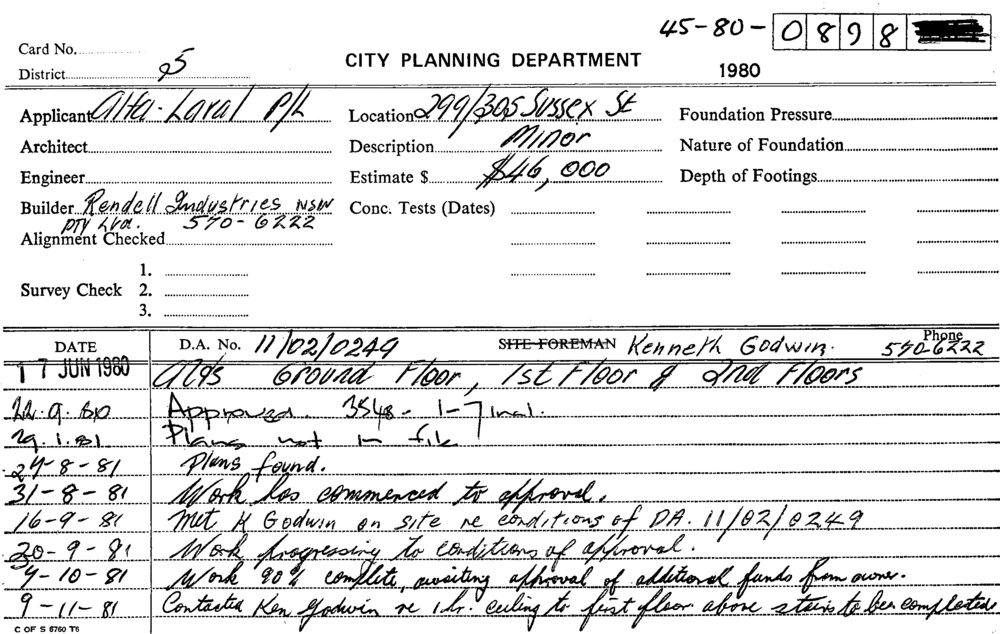 45-80-0898
Card No.
District 25
CITY PLANNING DEPARTMENT
1980
Applicant Alfa-Laval P/L
Location 299/305 Sussex St
Foundation Pressure
Architect
Description Minor
Nature of Foundation
Engineer
Estimate $ $46,000
Depth of Footings
Builder Rendell Industries NSW
Pty Ltd. 570-6222
Conc. Tests (Dates)
Alignment Checked
1.
Survey Check 2.
3.
DATE D.A. No. 11/02/0249 SITE FOREMAN Kenneth Godwin. Phone 570-6222
17 JUN 1980 Alts Ground Floor, 1st Floor & 2nd Floors
22.9.80 Approved. 3548-1-7 incl.
29.1.81 Plans not in file
24-8-81 Plans found.
31-8-81 Work has commenced to approval.
16-9-81 Met K Godwin on site re conditions of DA. 11/02/0249
30-9-81 Work progressing to conditions of approval.
9-10-81 Work 90% complete, awaiting approval of additional funds from owner.
9-11-81 Contacted Ken Godwin re 1 hr. ceiling to first floor above stairs to be completed.
C OF S 6760 T6